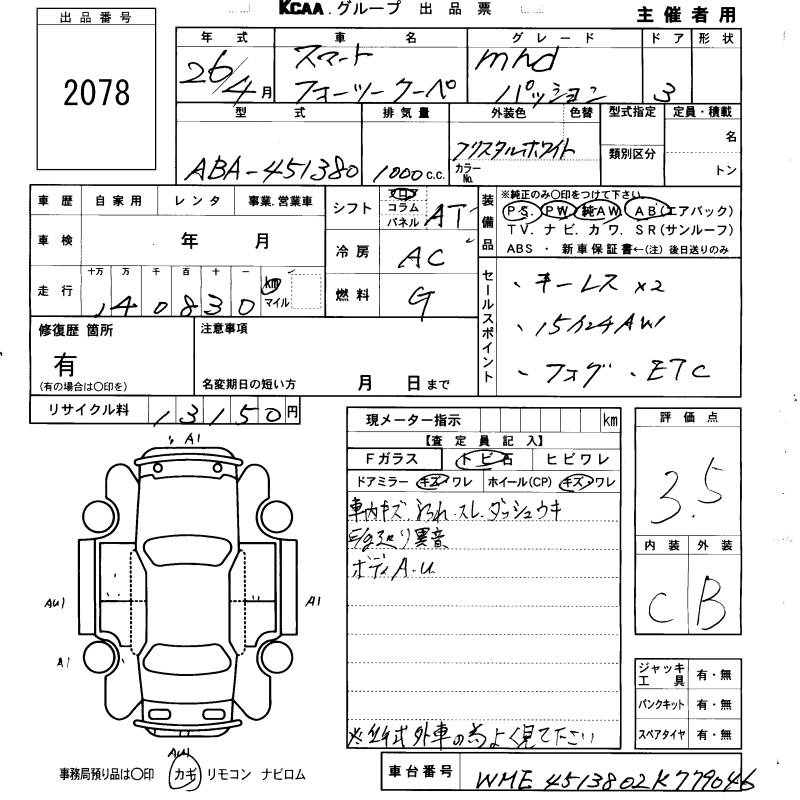 KCAA.グループ 出品票
主催者用
出品番号
2078
年式 車名 グレード ドア 形状
26/4月 スマート フォーツークーペ mhd パッション 3
型式 排気量 外装色 色替 型式指定 定員・積載
ABA-451380 1000c.c. クリスタルホワイト カラーNo. 類別区分 名 トン
車歴 自家用 レンタ 事業.営業車
車検 年 月
走行 十万 万 千 百 十 一 km マイル
140830
シフト フロア コラム パネル AT
冷房 AC
燃料 G
装備品
※純正のみ〇印をつけて下さい
P S. P W. 純A W. A B(エアバック)
T V. ナビ. カワ. S R(サンルーフ)
ABS ・ 新車保証書←(注)後日送りのみ
セールスポイント
、キーレス x2
、15/24AW
、フォグ 、ETC
修復歴 箇所
有
(有の場合は〇印を)
注意事項
名変期日の短い方 月 日まで
リサイクル料 13150円
現メーター指示 km
【査定員記入】
Fガラス トビ石 ヒビワレ
ドアミラー キズ・ワレ ホイール(CP) キズ・ワレ
車内キズ.汚れ.スレ.ダッシュウキ
異音
ボディA.U
※年式外車の為よく見て下さい
評価点
3.5
内装 外装
C B
ジャッキ工具 有・無
パンクキット 有・無
スペアタイヤ 有・無
A1
AU1
A1
A1
AU1
事務局預り品は〇印 カギ リモコン ナビロム
車台番号 WME4513802K779046